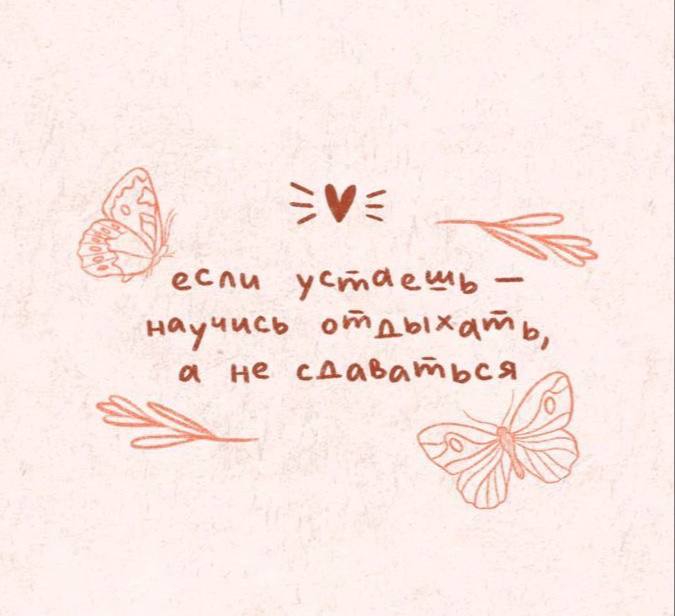 если устаешь —
научись отдыхать,
а не сдаваться